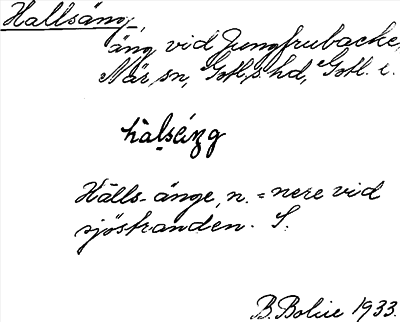 Hallsäng,
äng vid Jungfrubacke,
När sn, Gotl. s. hd, Gotl. l.
Hälls-änge, n. = nere vid
sjöstranden. S.
B. Bolin 1933.